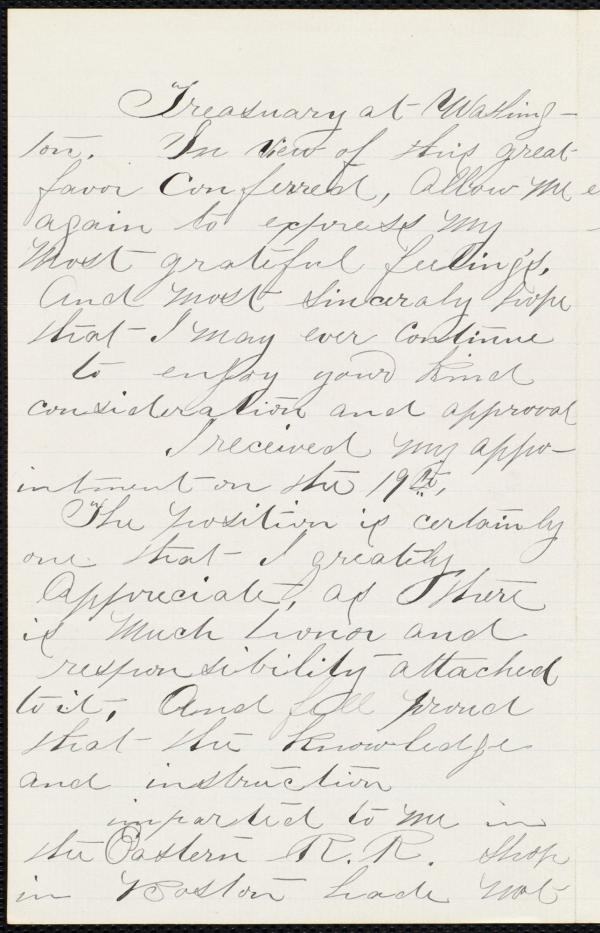 Treasuary at Washing-
ton. In view of this great
favor Conferred, Allow me
again to express my
Most grateful feelings,
And most sinceraly hope
that I may ever Continue
to enjoy your kind
consideration and approval
I received my appo-
intment on the 19th,
The position is certainly
one that I greatly
Appreciate, as there
is Much honor and
responsibility attached
to it, And fell proud
that the knowledge
and instruction
imparted to me in
the Eastern R. R. Shop
in Boston hade not